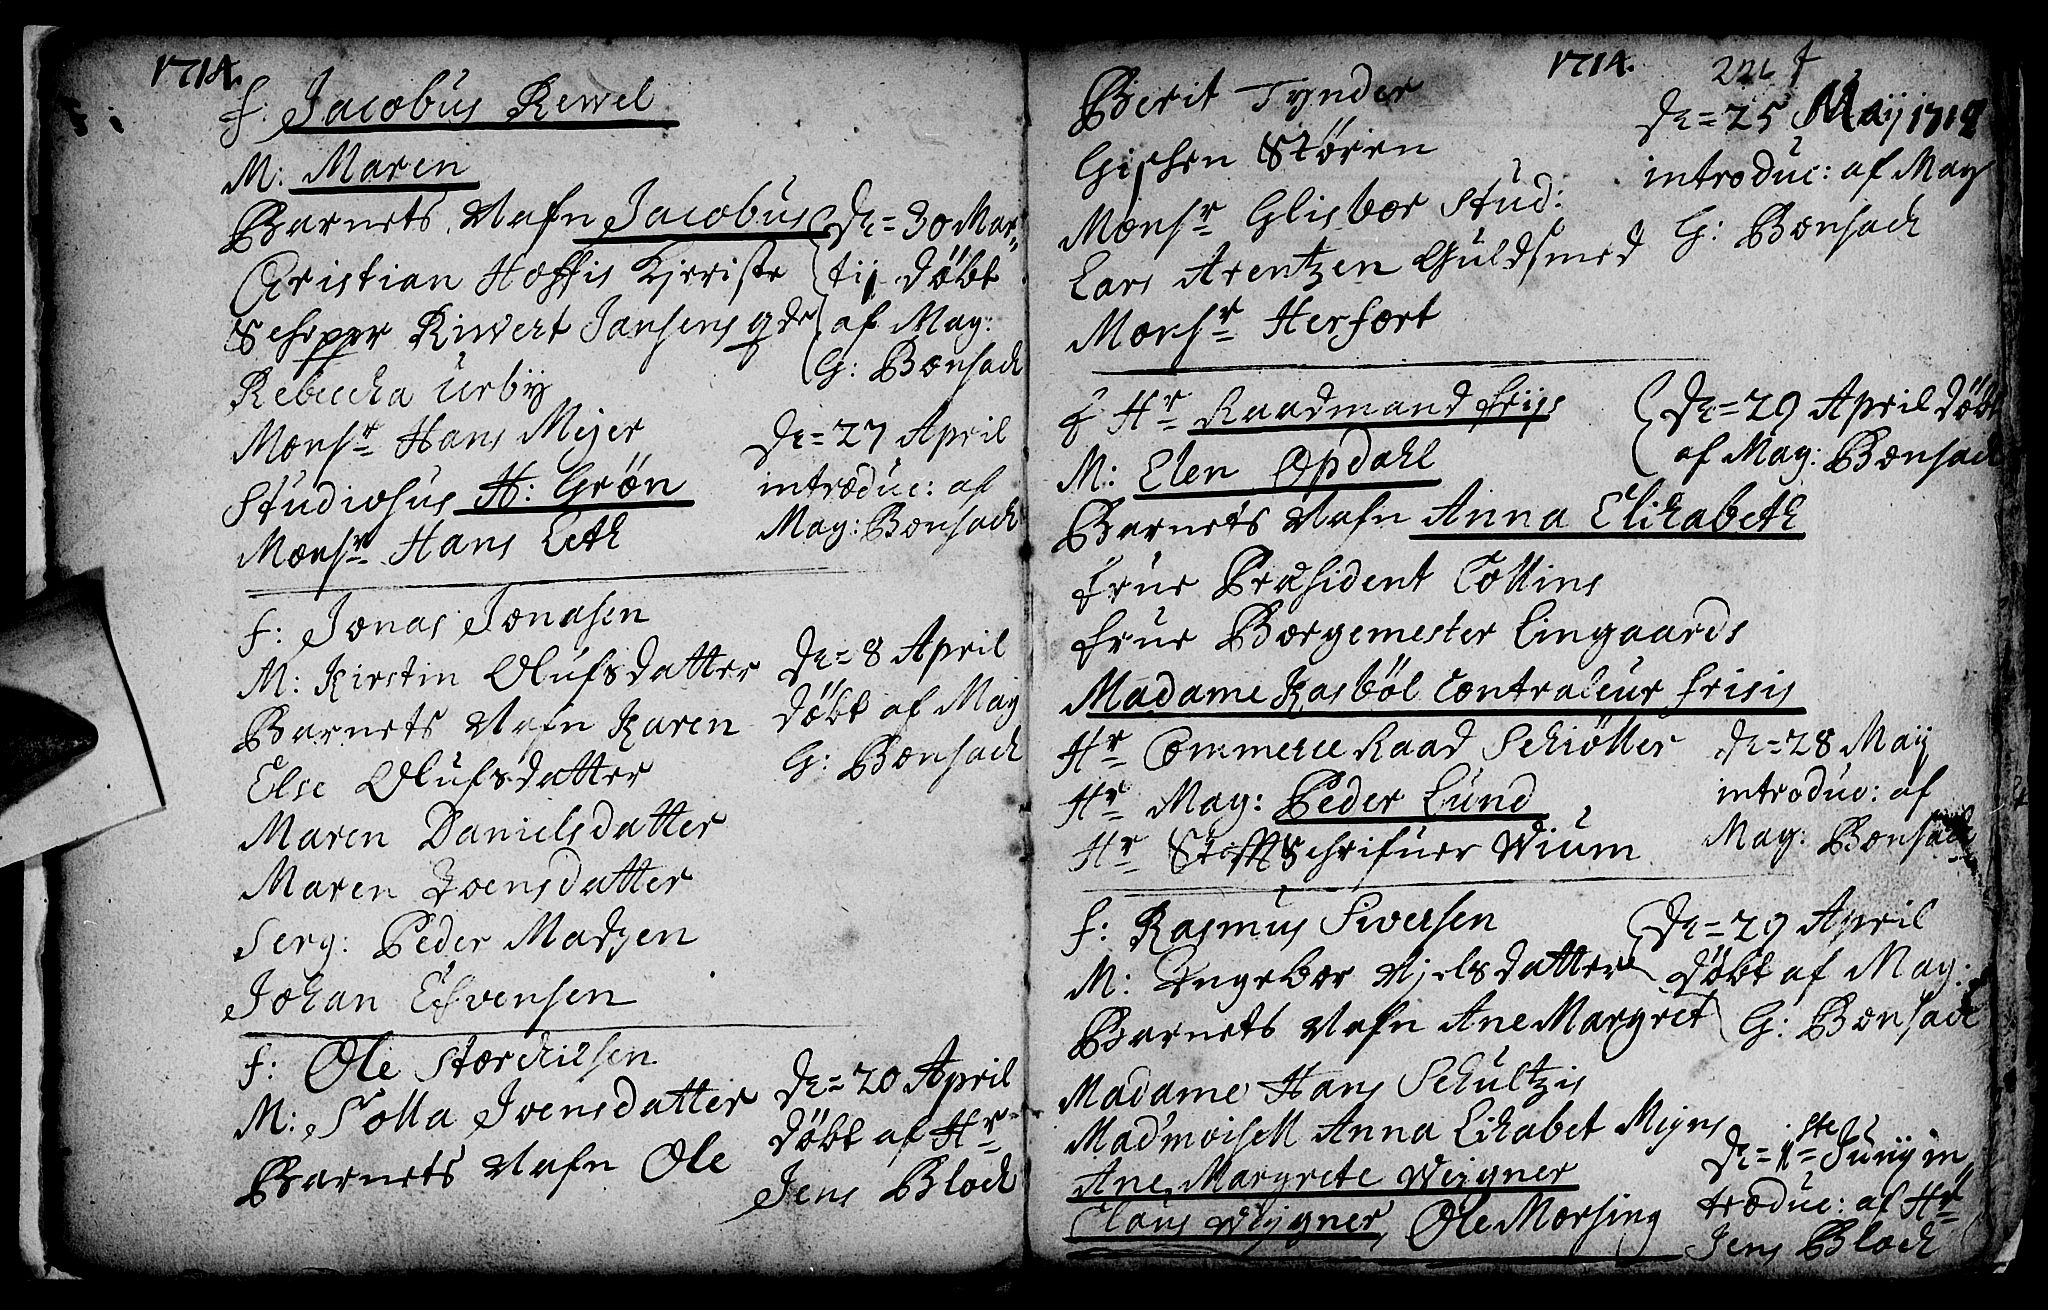 1714.
f: Jacobus Rewel
M: Maren
Barnets Nafn Jacobus
Cristian Hoffis Kjeriste
Schipper Riwert Jansens qde
Rebecka Urbÿ
Monsr Hans Meyer
Studiosus H: Grön
Monsr Hans Leth
De = 30 Mar-
tij döbt
af Mag:
G: Bonsach
De = 27 April
introduc: af
Mag: Bonsach
f: Jonas Jonasen
M: Kirstin Olufsdatter
Barnets Nafn Karen
Else Olufsdatter
Maren Danielsdatter
Maren Ivensdatter
Serg: Peder Madzen
Johan Esvensen
De = 8 April
döbt af Mag
G: Bonsach
f: Ole Storchilsen
M: Solla Ivensdatter
Barnets Nafn Ole
De = 20 April
döbt af Hr
Jens Bloch
1714.
Berit Tynder
Gisken Stören
Monsr Glisbor Stud:
Lars Arentzen Guldsmed
Monsr Herfort
De = 25 Maij 1712
introduc: af Mag
G: Bonsach
f Hr Raadmand friis
M: Elen Opdahl
Barnets Nafn Anna Elisabeth
frue Præsident Collins
frue Borgemester Lingaards
Madame Kasböl Contraleur frisis
Hr Commerce Raad Schiöller
Hr Mag: Peder Lund
Hr Stafftschrifuer Wium
De = 29 April döbt
af Mag: Bonsach
De = 28 Maij
introduc: af
Mag: Bonsach
f: Rasmus Siversen
M: Ingebor Njelsdatter
Barnets Nafn Ane Margret
Madame Hans Schultzis
Mad'moisell Anna Lisabet Meyns
Ane Margrete Weygner
Claus Weygner, Ole Morsing
De = 29 April
döbt af Mag.
G: Bonsach
De = 1ste Junij in
troduc: af Hr
Jens Bloch